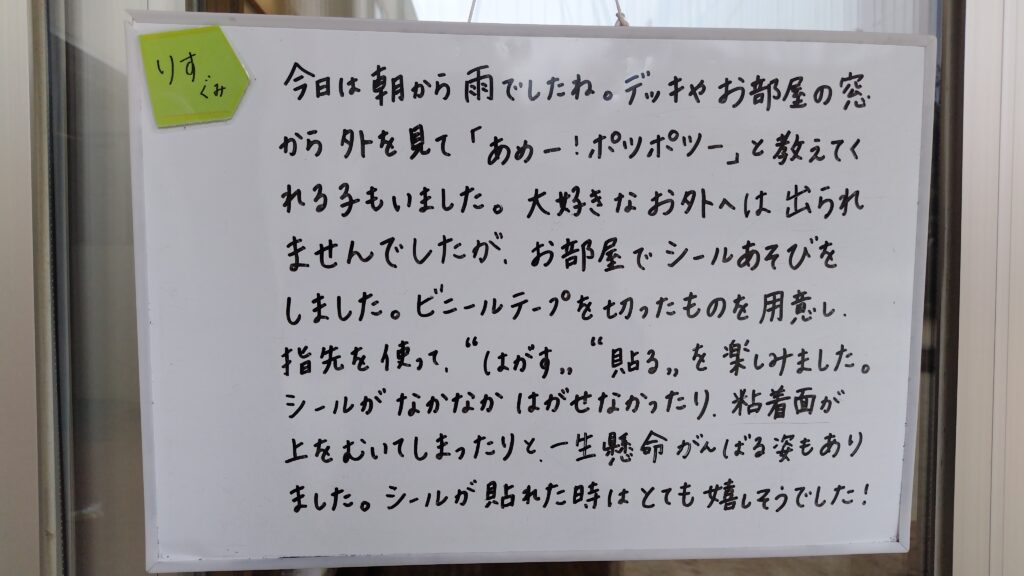 りす
ぐみ
今日は朝から雨でしたね。デッキやお部屋の窓
から外を見て「あめー！ポツポツー」と教えてく
れる子もいました。大好きなお外へは出られ
ませんでしたが、お部屋でシールあそびを
しました。ビニールテープを切ったものを用意し、
指先を使って、“はがす„ “貼る„ を楽しみました。
シールがなかなかはがせなかったり、粘着面が
上をむいてしまったりと、一生懸命がんばる姿もあり
ました。シールが貼れた時はとても嬉しそうでした！